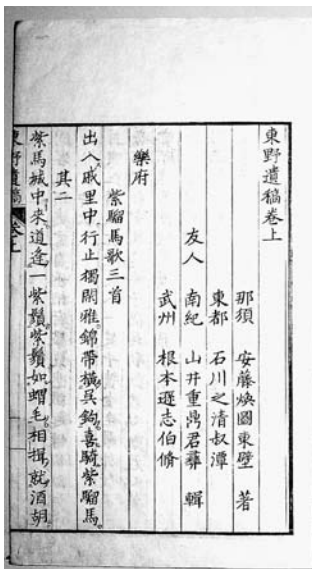 東野遺稿卷上
那須 安藤煥圖東壁 著
東都 石川之清叔潭
友人 南紀 山井重鼎君彝 輯
武州 根本遜志伯脩
樂府
紫騮馬歌三首
出入戚里中行止獨閒雅錦帶橫吳鉤喜騎紫騮馬
其二
紫馬城中來道逢一紫鬚紫鬚如蝟毛相揖就酒胡
東野遺稿 卷上